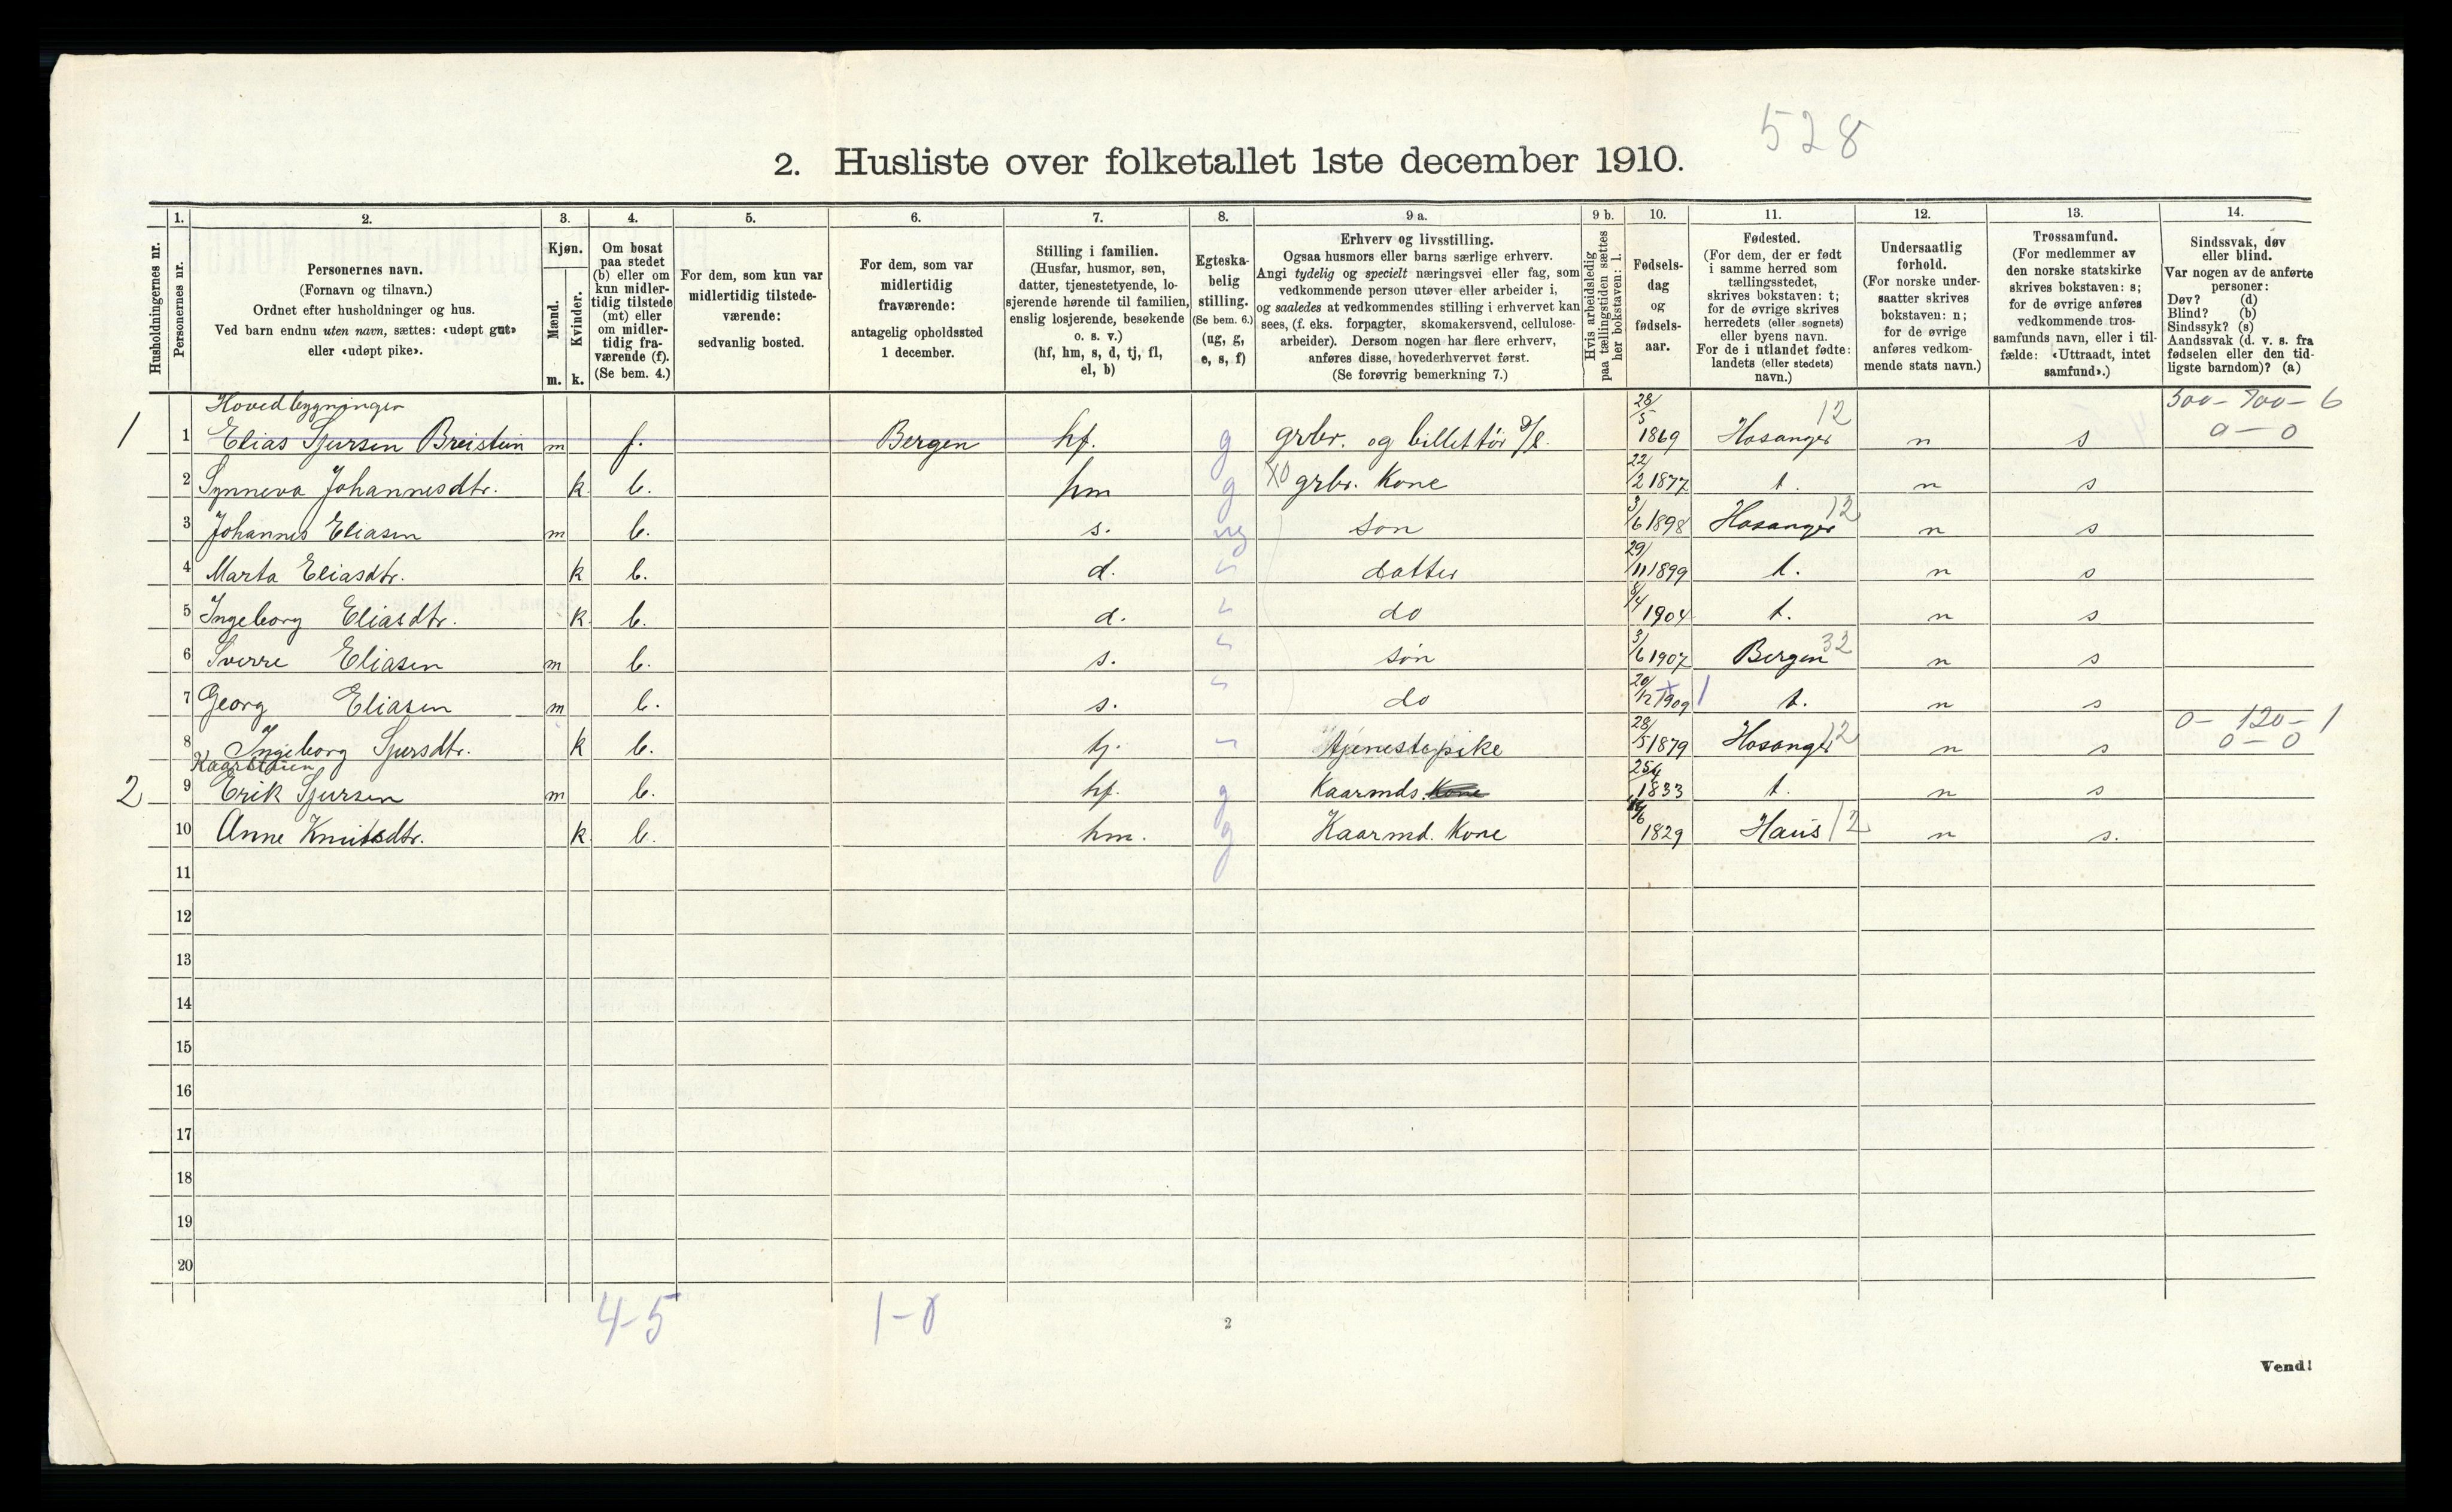 528
2. Husliste over folketallet 1ste december 1910.
Husholdningernes nr.
1.
Personernes nr.
2.
Personernes navn.
(Fornavn og tilnavn.)
Ordnet efter husholdninger og hus.
Ved barn endnu uten navn, sættes: «udøpt gut»
eller «udøpt pike».
3.
Kjøn.
Mænd.
Kvinder.
m. k.
4.
Om bosat
paa stedet
(b) eller om
kun midler-
tidig tilstede
(mt) eller
om midler-
tidig fra-
værende (f).
(Se bem. 4.)
5.
For dem, som kun var
midlertidig tilstede-
værende:
sedvanlig bosted.
6.
For dem, som var
midlertidig
fraværende:
antagelig opholdssted
1 december.
7.
Stilling i familien.
(Husfar, husmor, søn,
datter, tjenestetyende, lo-
sjerende hørende til familien,
enslig losjerende, besøkende
o. s. v.)
(hf, hm, s, d, tj, fl,
el, b)
8.
Egteska-
belig
stilling.
(Se bem. 6.)
(ug, g,
e, s, f)
9 a.
Erhverv og livsstilling.
Ogsaa husmors eller barns særlige erhverv.
Angi tydelig og specielt næringsvei eller fag, som
vedkommende person utøver eller arbeider i,
og saaledes at vedkommendes stilling i erhvervet kan
sees, (f. eks. forpagter, skomakersvend, cellulose-
arbeider). Dersom nogen har flere erhverv,
anføres disse, hovederhvervet først.
(Se forøvrig bemerkning 7.)
9 b.
Hvis arbeidsledig
paa tællingstiden sættes
her bokstaven: l.
10.
Fødsels-
dag
og
fødsels-
aar.
11.
Fødested.
(For dem, der er født
i samme herred som
tællingsstedet,
skrives bokstaven: t;
for de øvrige skrives
herredets (eller sognets)
eller byens navn.
For de i utlandet fødte:
landets (eller stedets)
navn.)
12.
Undersaatlig
forhold.
(For norske under-
saatter skrives
bokstaven: n;
for de øvrige
anføres vedkom-
mende stats navn.)
13.
Trossamfund.
(For medlemmer av
den norske statskirke
skrives bokstaven: s;
for de øvrige anføres
vedkommende tros-
samfunds navn, eller i til-
fælde: «Uttraadt, intet
samfund».)
14.
Sindssvak, døv
eller blind.
Var nogen av de anførte
personer:
Døv? (d)
Blind? (b)
Sindssyk? (s)
Aandssvak (d. v. s. fra
fødselen eller den tid-
ligste barndom)? (a)
Hovedbygningen 500 - 700 - 6
1 1 Elias Sjursen Breistein m f. Bergen hf. g grbr. og billettør D/S. 28/5 1869 Hosanger 12 n s 0 - 0
2 Synneva Johannesdtr. k b. hm g grbr. Kone 22/2 1877 t. n s
3 Johannes Eliasen m b. s. ug søn 3/6 1898 Hosanger 12 n s
4 Marta Eliasdtr. k b. d. " datter 29/11 1899 t. n s
5 Ingeborg Eliasdtr. k b. d. " do 8/4 1904 t. n s
6 Sverre Eliasen m b. s. " søn 3/6 1907 Bergen 32 n s
7 Georg Eliasen m b. s. " do 20/12 1909 1 t. n s
0 - 120 - 1
8 Ingeborg Sjursdtr. k b. tj. " tjenestepike 28/5 1879 Hosanger 12 n s 0 - 0
Kaarstuen
2 9 Erik Sjursen m b. hf. g Kaarmds. Kone 25/4 1833 t. n s
10 Anne Knutsdtr. k b. hm. g Kaarmd. Kone 1829 Haus 12 n s.
11
12
13
14
15
16
17
18
19
20
4-5 1-0
2
Vend!